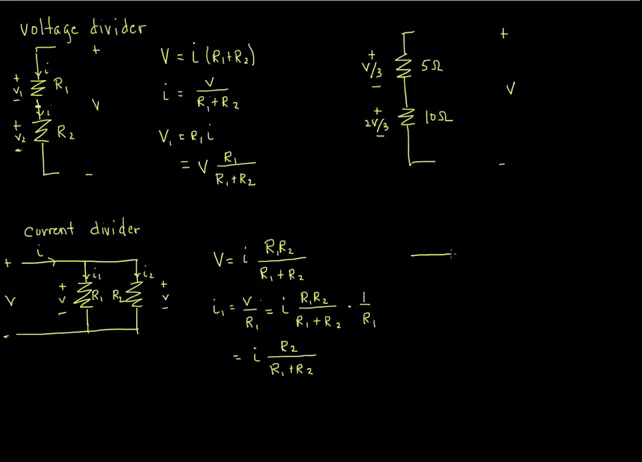 voltage divider
+
i
+ V₁ - R₁
i
V
+ V₂ - R₂
-
V = i (R₁+R₂)
i = V / (R₁+R₂)
V₁ = R₁ i
= V R₁ / (R₁+R₂)
+
+ V/3 - 5Ω
V
+ 2V/3 - 10Ω
-
current divider
i
+ i₁ i₂
V + V - R₁ R₂ + V -
-
V = i R₁R₂ / (R₁+R₂)
i₁ = V/R₁ = i R₁R₂ / (R₁+R₂) · 1/R₁
= i R₂ / (R₁+R₂)